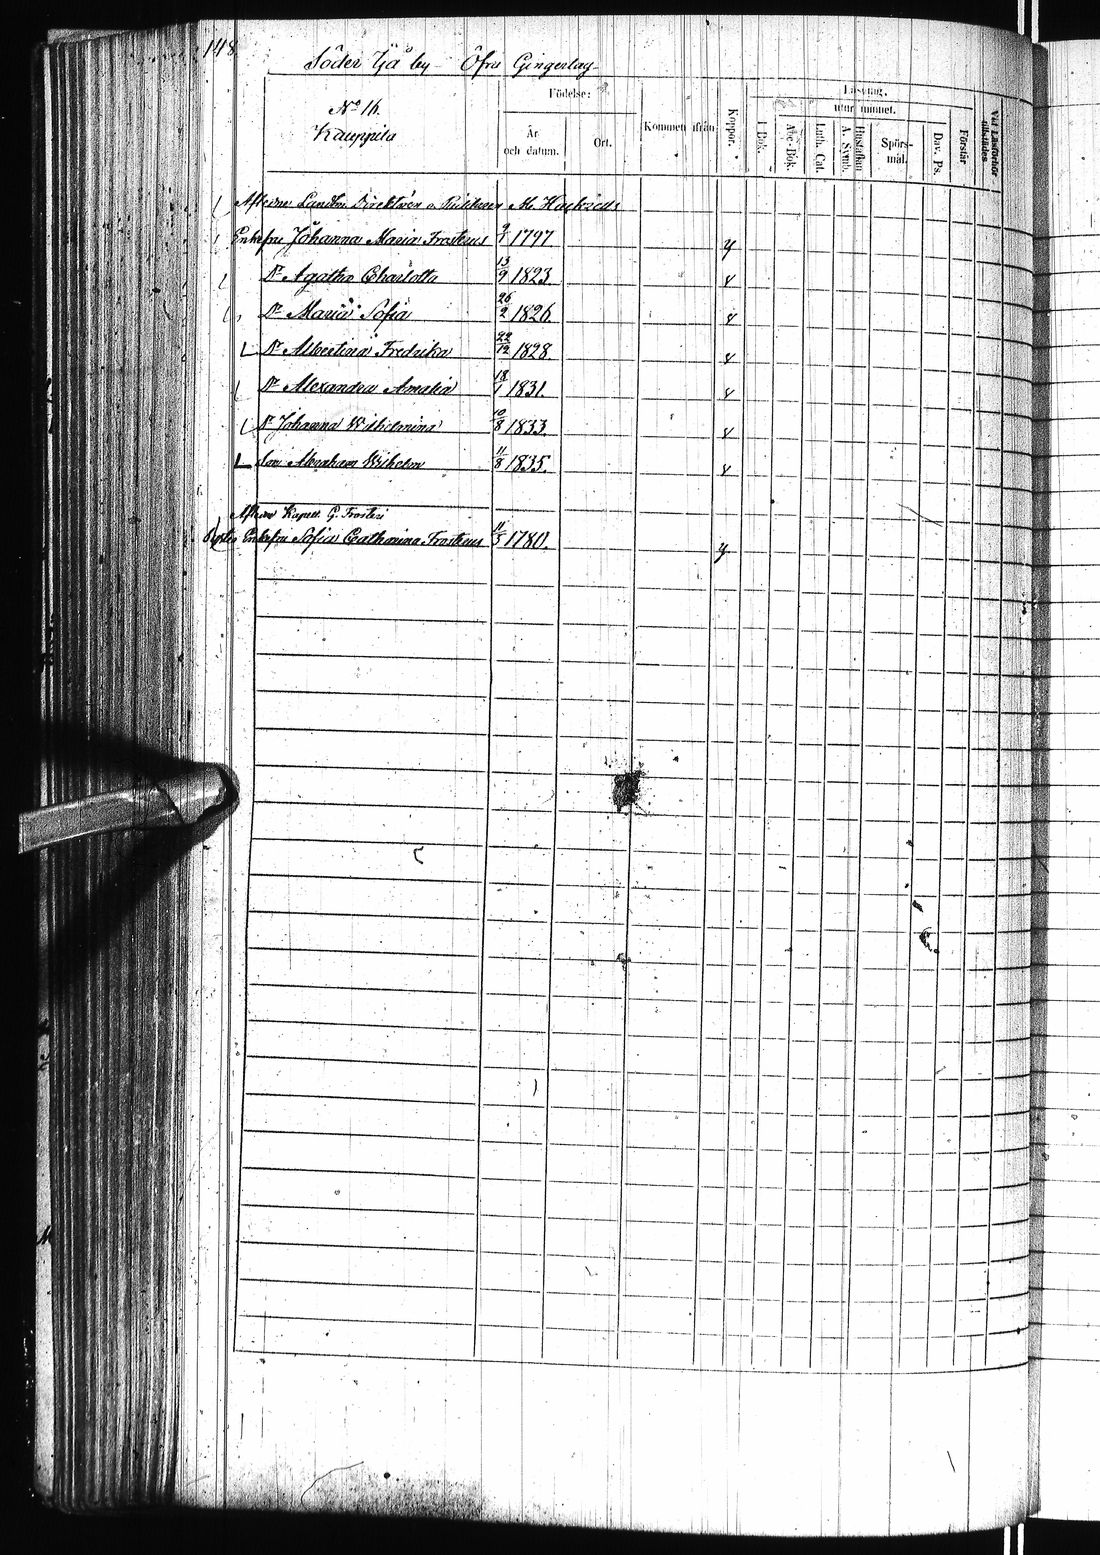 148
Söder Yjä by Öfre Gingerlag
No 16.
Kauppila
Födelse:
År och datum.
Ort.
Kommen ifrån
Koppor.
Läsning,
utur minnet.
I Bok.
Abc-Bok.
Luth. Cat.
Hustaflan A. Symb.
Spörs-mål.
Dav. Ps.
Förstår
Vid Läsförhör tillstädes
Aflidne Landtm. Direktören o. Riddaren M.
Enkefru Johanna Maria Frosterus 9/1 1797. y
Dr Agatha Charlotta 13/9 1823. y
Dr Maria Sofia 26/2 1826. y
Dr Albertina Fredrika 22/12 1828. y
Dr Alexandra Amalia 18/1 1831. y
Dr Johanna Wilhelmina 10/8 1833. y
Son Abraham Wilhelm 11/8 1835. y
Aflidne Kapell. G. Frosteri
Enkefru Sofia Catharina Frosterus 11/5 1780. y